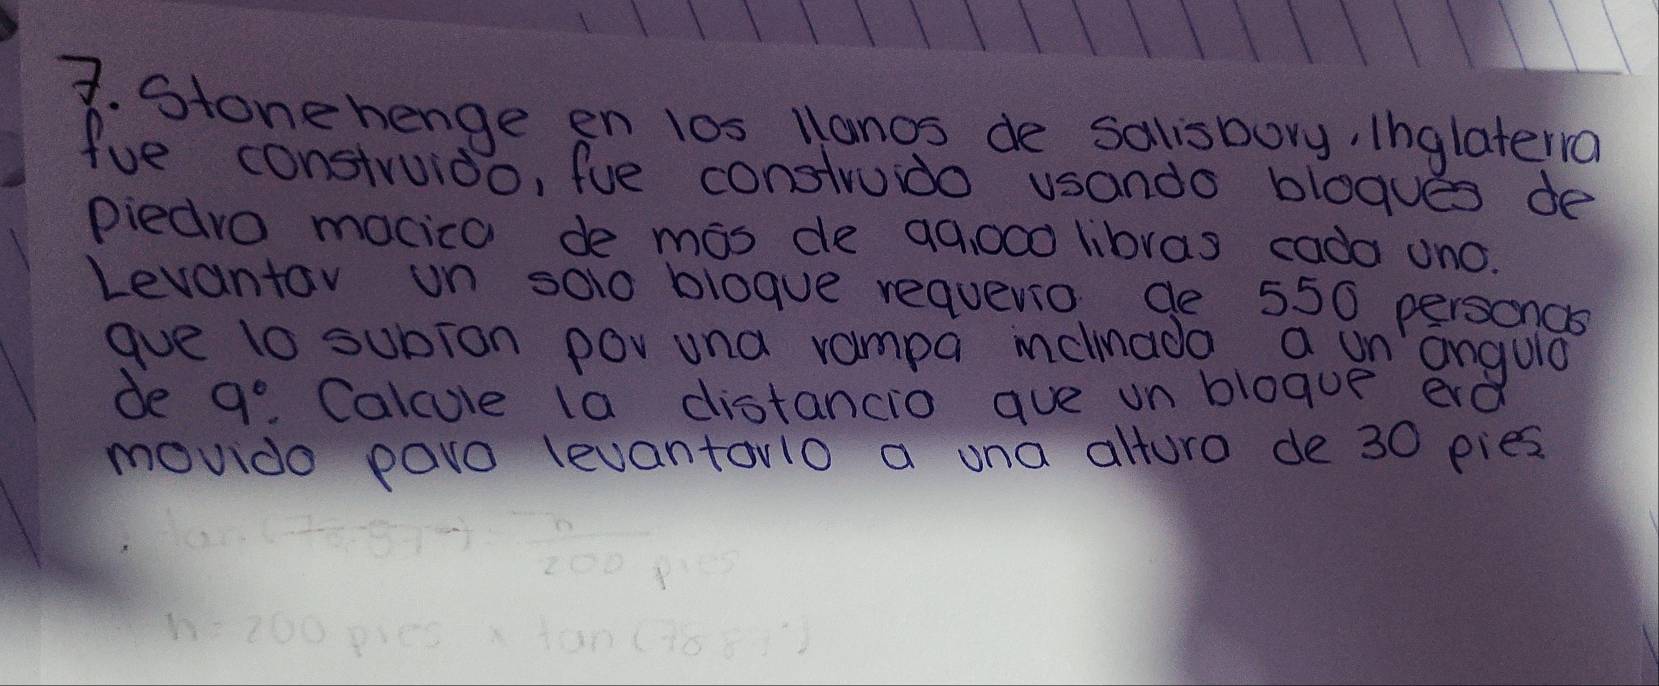 7. Stonehenge en los llanos de Salisbury, Inglaterra
fue construido, fue construido usando bloques de
piedra macica de mas de 99,000 libras cada uno.
Levantar un solo bloque requeria de 550 personas
que lo subian por una rampa inclinada a un angulo
de 9°. Calcule la distancia que un bloque era
movido para levantarlo a una altura de 30 pies
tan ( h
200 pies
h = 200 pies x tan (